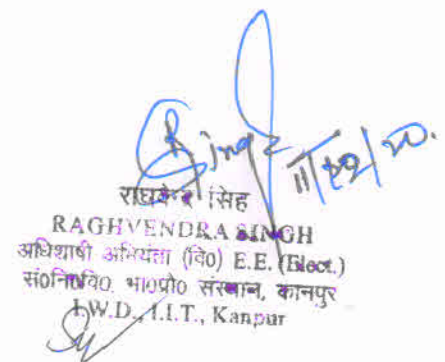 RSingh
11/12/20.
राघवेन्द्र सिंह
RAGHVENDRA SINGH
अधिशाषी अभियंता (वि0) E.E. (Elect.)
सं0नि0वि0, भा0प्रौ0 संस्थान, कानपुर
I.W.D., I.I.T., Kanpur